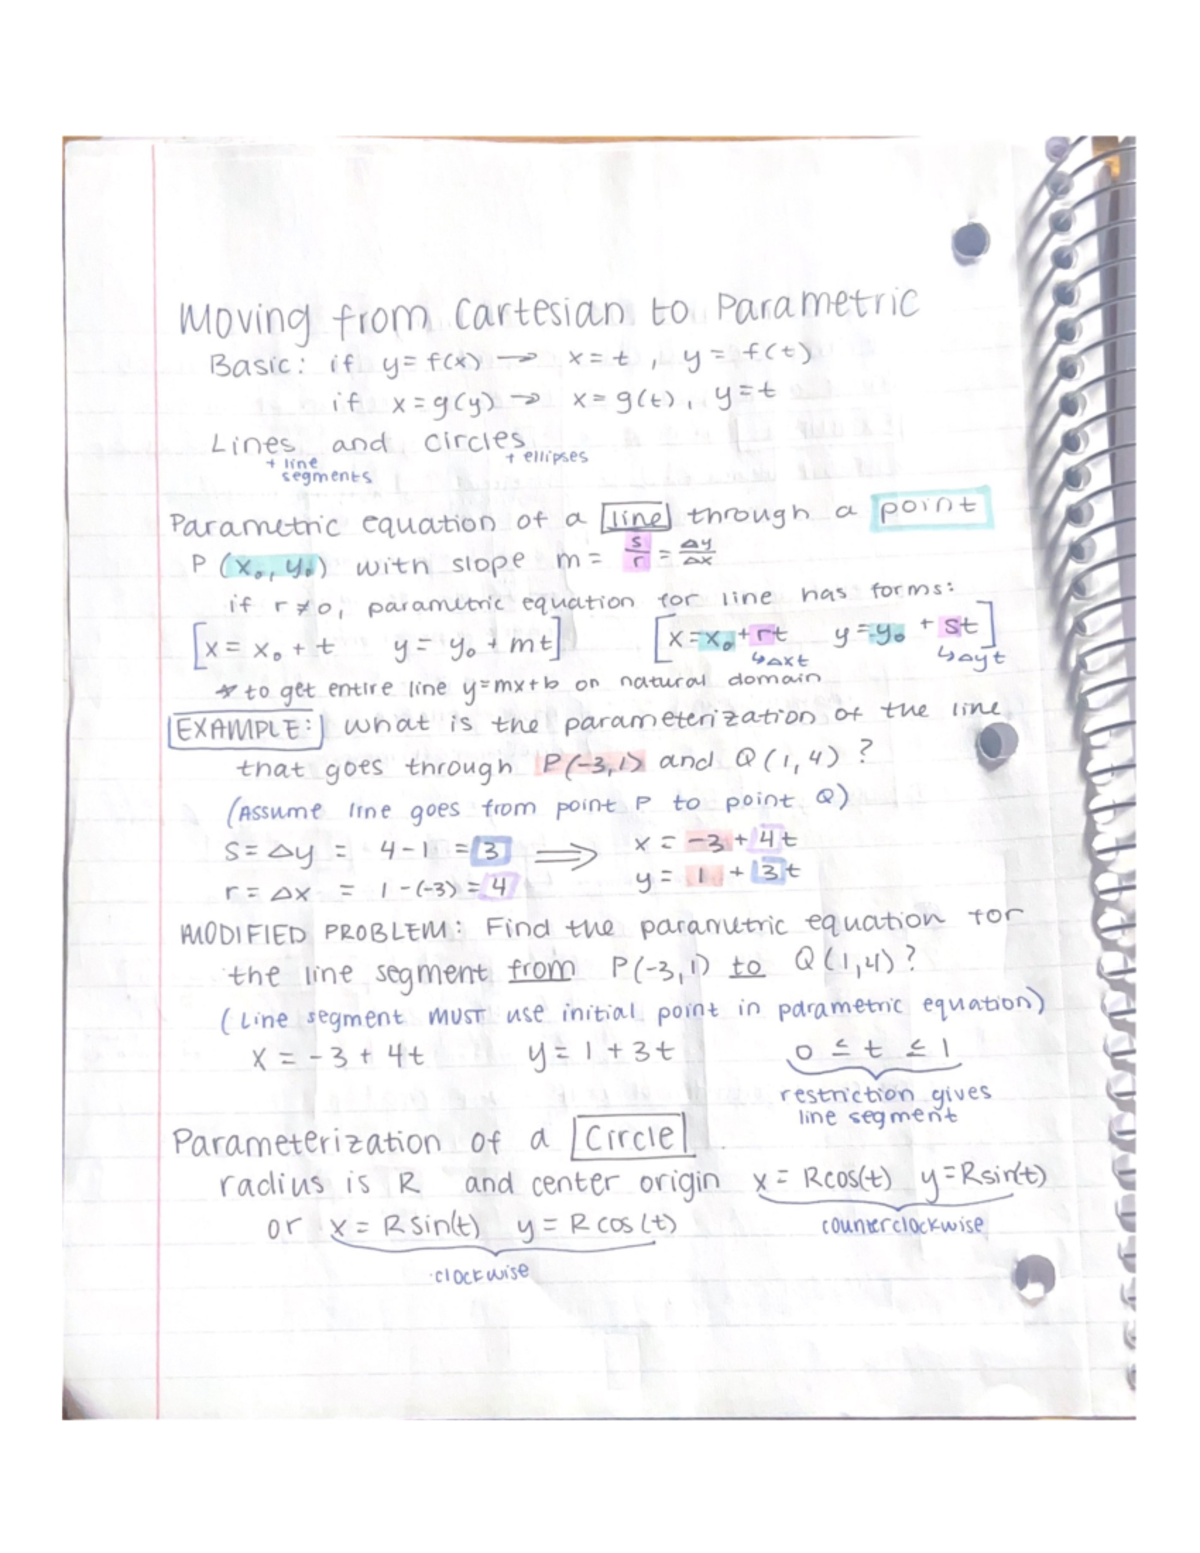 Moving from Cartesian to Parametric
Basic: if y = f(x) → x = t , y = f(t)
if x = g(y) → x = g(t) , y = t
Lines and circles
+ line segments + ellipses
Parametric equation of a line through a point
P (x₀, y₀) with slope m = s/r = Δy/Δx
if r ≠ 0, parametric equation for line has forms:
[x = x₀ + t y = y₀ + mt] [x = x₀ + rt y = y₀ + st]
↳Δxt ↳Δyt
* to get entire line y=mx+b on natural domain
EXAMPLE: What is the parameterization of the line
that goes through P(-3,1) and Q(1,4) ?
(Assume line goes from point P to point Q)
S = Δy = 4-1 = 3 ⟹ x = -3 + 4t
r = Δx = 1-(-3) = 4 y = 1 + 3t
MODIFIED PROBLEM: Find the parametric equation for
the line segment from P(-3,1) to Q(1,4)?
(Line segment MUST use initial point in parametric equation)
x = -3 + 4t y = 1 + 3t 0 ≤ t ≤ 1
restriction gives
line segment
Parameterization of a Circle
radius is R and center origin x = Rcos(t) y = Rsin(t)
or x = R sin(t) y = R cos(t) counterclockwise
clockwise